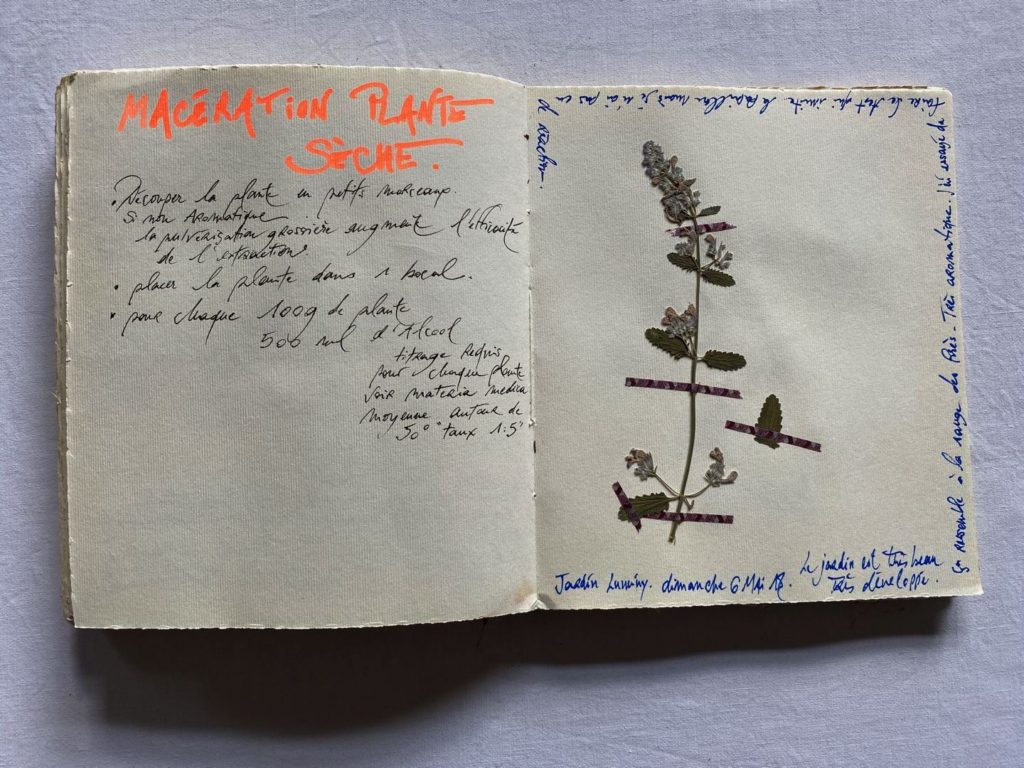 MACÉRATION PLANTE
SÈCHE.
• Découper la plante en petits morceaux.
Si non Aromatique
la pulvérisation grossière augmente l'efficacité
de l'extraction.
• placer la plante dans 1 bocal.
• pour chaque 100g de plante
500 ml d'Alcool
titrage Requis
pour chaque plante
voir materia medica
moyenne autour de
50° "taux 1:5"
Jardin Luminy. dimanche 6 Mai 18.
Le jardin est très beau
Très développé.
ça ressemble à la sauge des Près - Très aromatique. J'ai essayé de
faire le test qui imite le papillon mais je n'ai pas eu
de réaction.